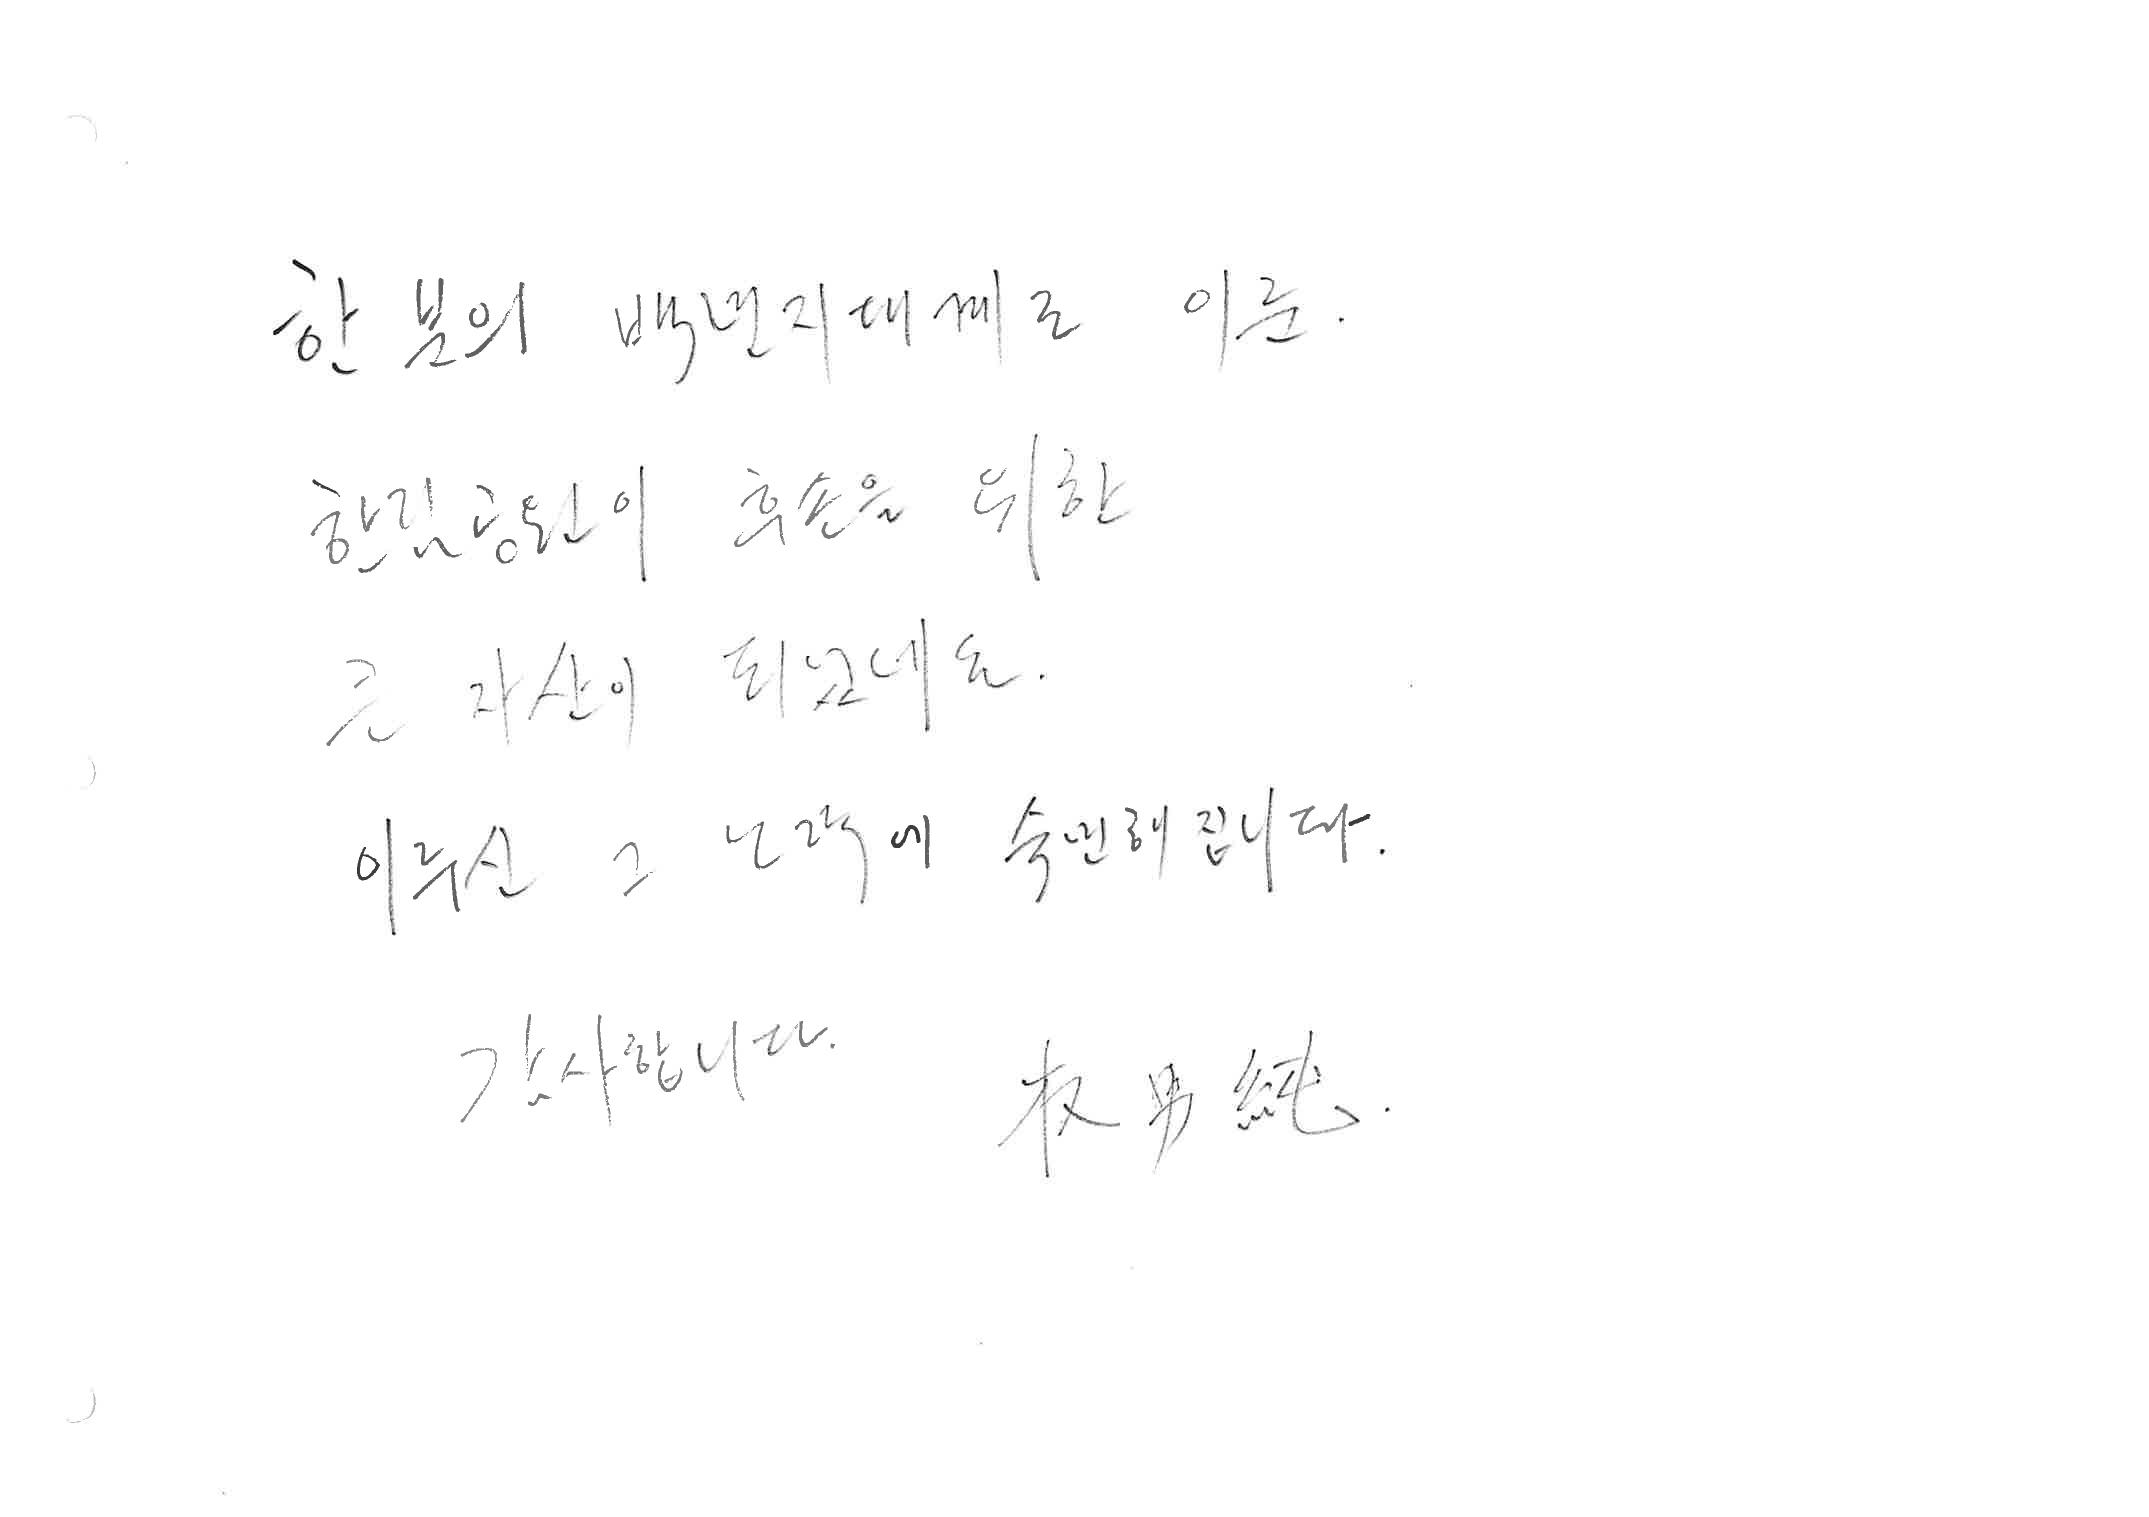 한 분의 백년지대계로 이룬.
한림공원이 후손을 위한
큰 자산이 되었네요.
이루신 그 노력에 숙연해집니다.
감사합니다. 男純.